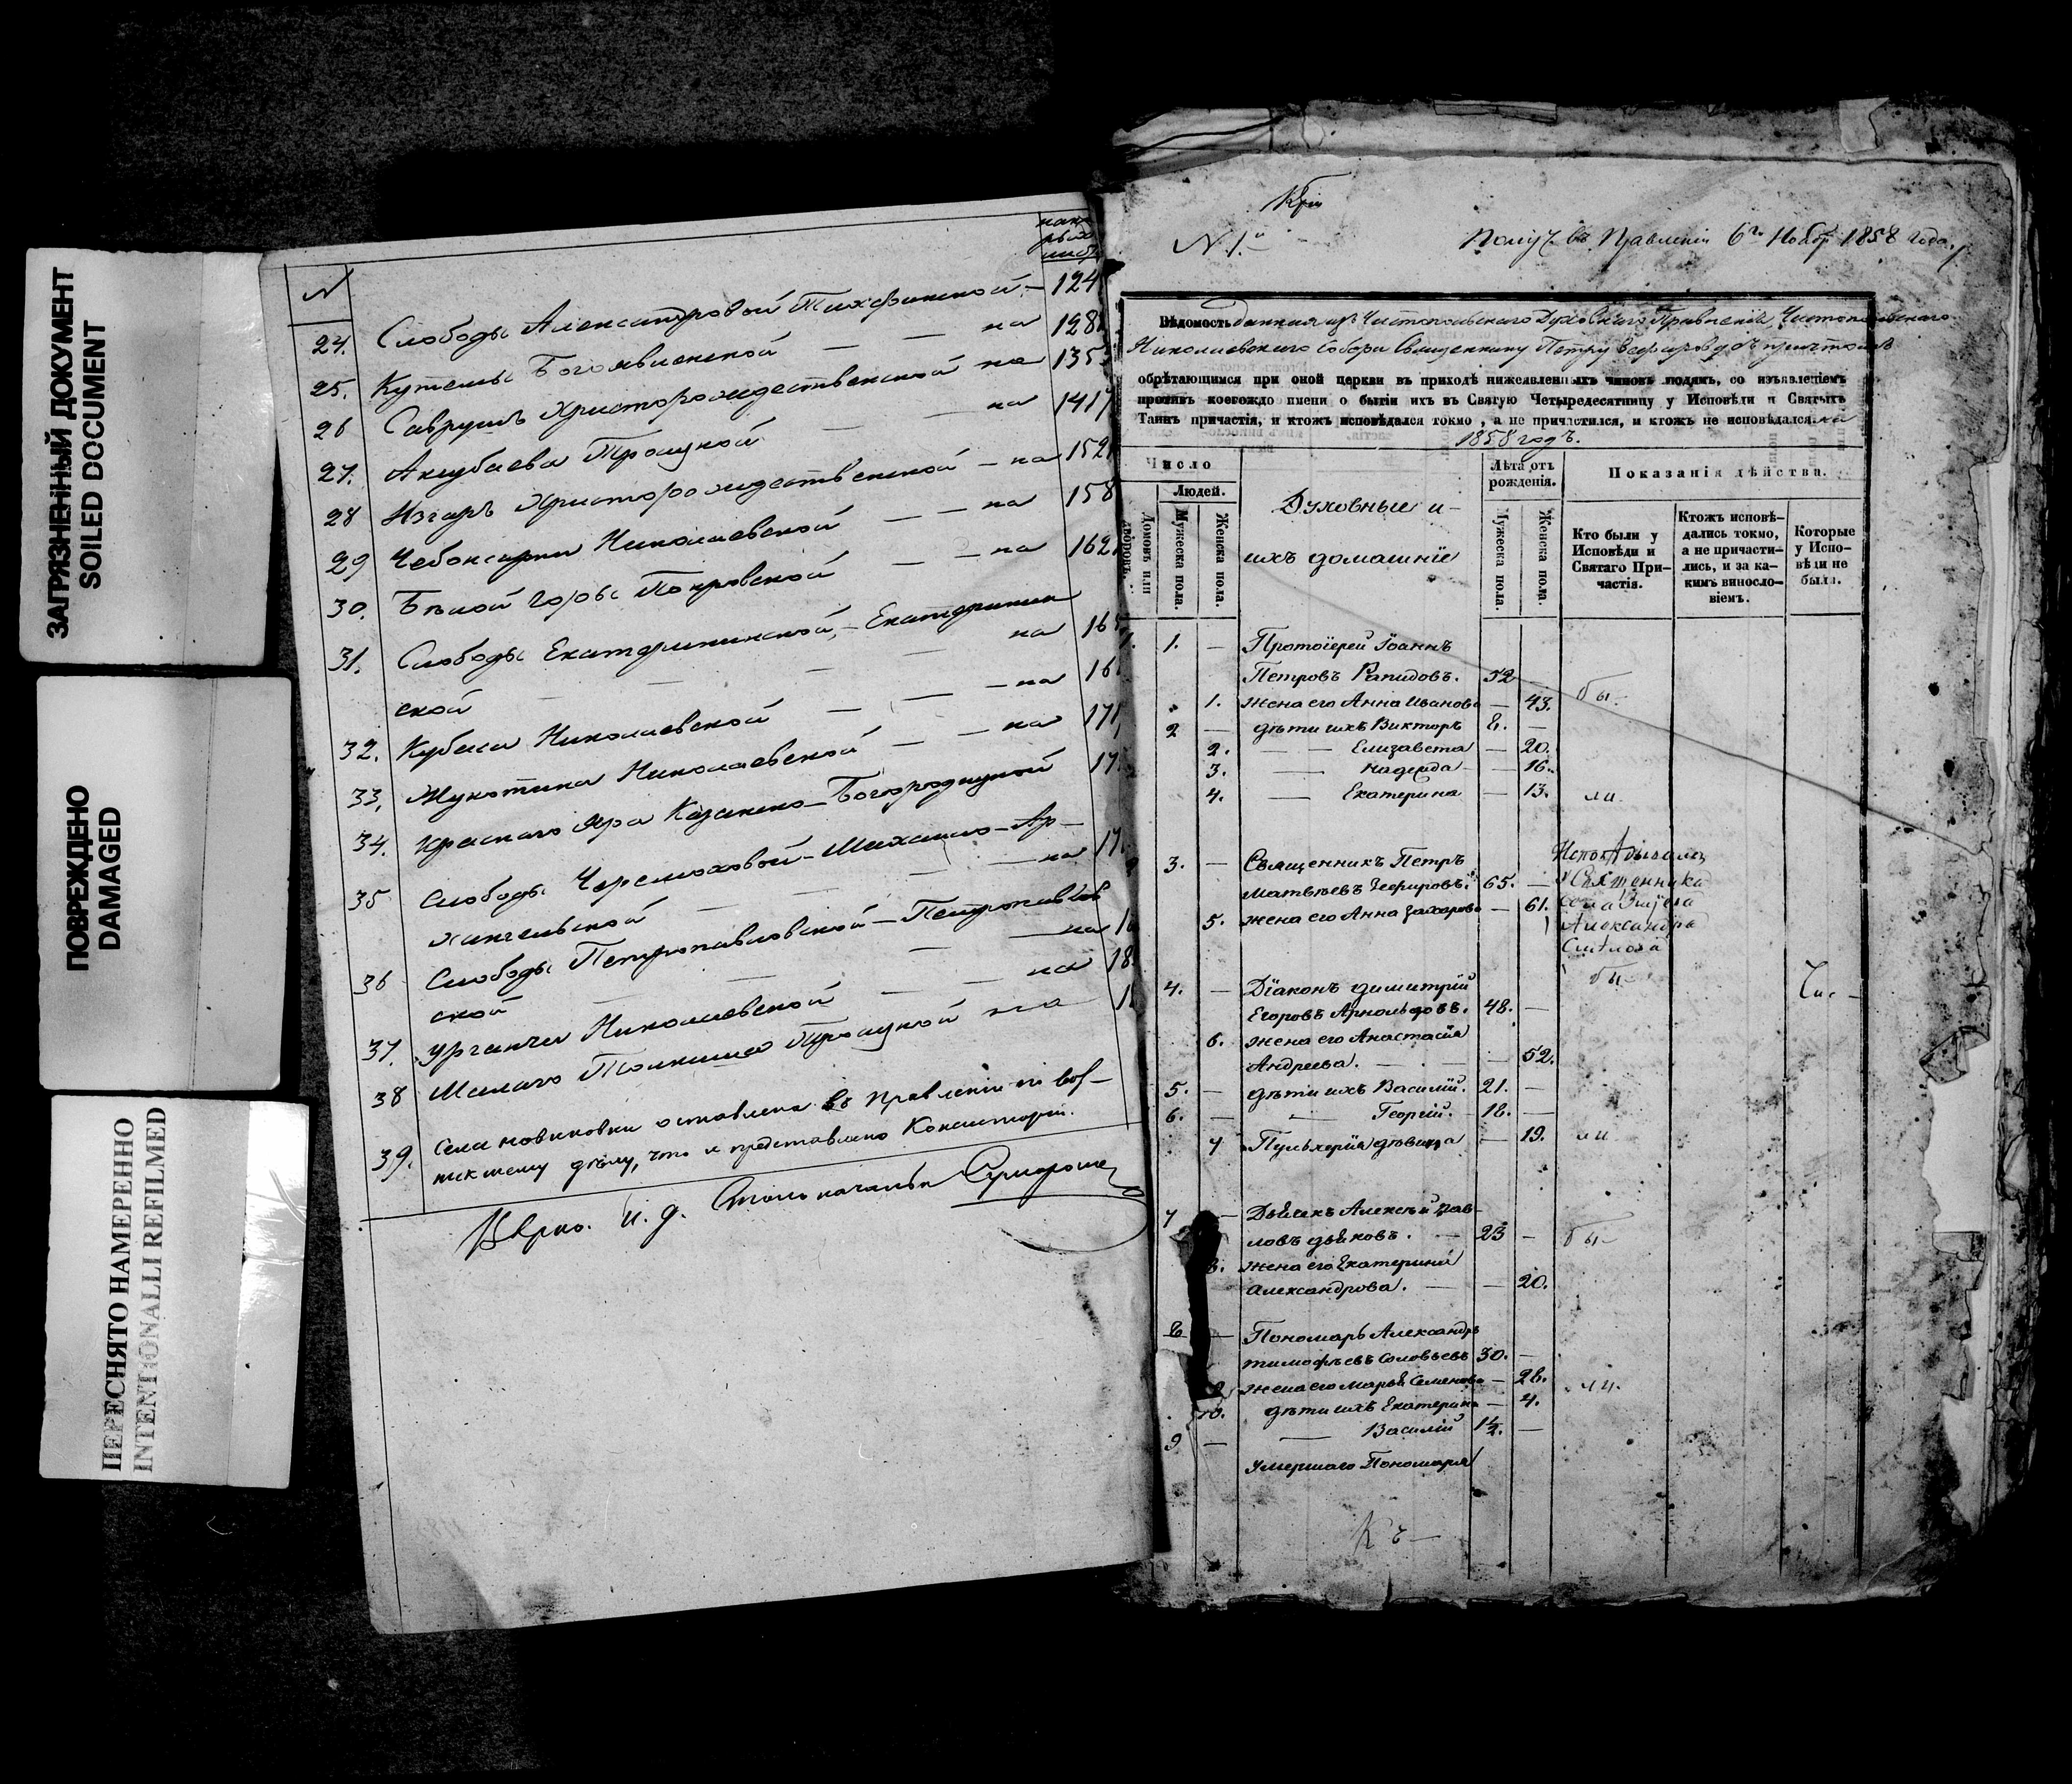 ЗАГРЯЗНЕННЫЙ ДОКУМЕНТ
SOILED DOCUMENT
ПОВРЕЖДЕНО
DAMAGED
ПЕРЕСНЯТО НАМЕРЕННО
INTENTIONALLI REFILMED
N
24. Слободы Александровой Тихвинской — 124
25. Кутемы Богоявленской — — на 128
26 Саврушъ Христорождественской на 135
27. Акзубаева Троицкой — — на 141
28 Изгаръ Христорождественской — на 152
29 Чебоксарки Николаевской — — на 158
30. Бѣлой горы Покровской — — на 162
31. Слободы Екатерининской, — Екатеринин
ской — — — на 165
32. Кубаса Николаевской — — — на 16
33, Жукотина Николаевской — — на 171
34. Краснаго Яра Казанско-Богородицкой 17
35 Слободы Черемуховой — Михаило-Ар-
хангельской — — — на 17
36 Слободы Петропавловской — Петропавлов
ской — — — на 1
37. Урганчи Николаевской — — на 18
38 Малаго Толкиша Троицкой на 1
39. Села новиковки оставлена въ Правленіи по воз-
никшему дѣлу, что и представлено Консисторіи.
Вѣрно. И. д. Столоначальн
N. 1.й
Получ. въ Правленіи 6го Ноябр 1858 года.
Вѣдомость данная изъ Чистопольскаго Духовнаго Правленія, Чистопольскаго
Николаевскаго Собора Священнику Петру Зефирову съ причтомъ
обрѣтающимся при оной церкви въ приходѣ нижеявленныхъ чиновъ людямъ, со изъявленіемъ
противъ коегождо имени о бытіи ихъ въ Святую Четыредесятницу у Исповѣди и Святыхъ
Таинъ причастія, и ктожъ исповѣдался токмо, а не причастился, и ктожъ не исповѣдался. на
1858 годъ.
Число
Людей.
Домовъ или дворовъ.
Мужеска пола.
Женска пола.
Духовные и
ихъ домашніе
Лѣта отъ рожденія.
Мужеска пола.
Женска пола.
Показанія дѣйства.
Кто были у Исповѣди и Святаго Причастія.
Ктожъ исповѣдались токмо, а не причастились, и за какимъ винословіемъ.
Которые у Исповѣди не были.
1. 1. — Протоіерей Іоаннъ
Петровъ Рапидовъ. 52 —
1. жена его Анна Иванова — 43. бы-
2 — дѣти ихъ Викторъ 8. —
2. — Елизавета — 20.
3. — Надежда — 16.
4. — Екатерина — 13. ли.
3. — Священникъ Петръ
Матвѣевъ Зефировъ. 65. —
5. жена его Анна Захарова — 61.
Священника
Александра
4. — Діаконъ Димитрій бы-
Егоровъ Арнольдовъ. 48. —
6. жена его Анастасія
Андреева. — — 52.
5. — дѣти ихъ Василій. 21. —
6. — — Георгій. 18. —
7 Пульхерія дѣвица — 19. ли
7 — Дьячекъ Алексѣй Пав-
ловъ Дьяковъ. — 23 — бы-
8. жена его Екатерина
Александрова. — — 20.
8 — Пономарь Александръ
Тимофѣевъ Соловьевъ 30. —
9 жена его Марья Семенова — 28. ли.
10. дѣти ихъ Екатерина — 4.
9 — — Василій 1½. —
Умершаго Пономаря